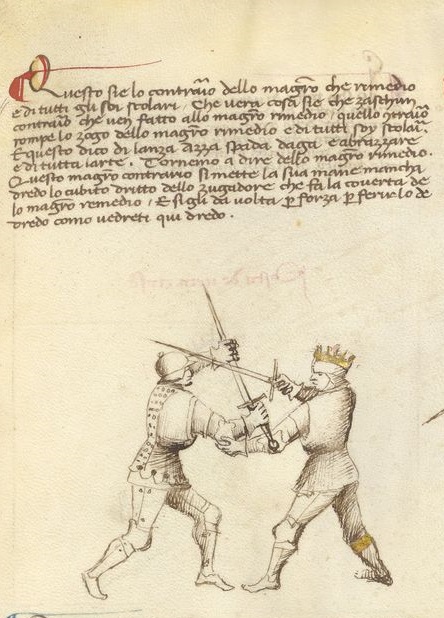 Questo sie lo contraio dello magro che rimedio
e di tutti gli soi scolari, Che vera cosa sie che zaschun
contraio che ven fatto allo magro rimedio, quello contraio
rompe lo zogo dello magro rimedio e di tutti soy scolari.
E questo dico di lanza Azza spada daga e abrazzare
e di tutta larte. Tornemo a dire dello magro rimedio.
Questo magro contrario si mette la sua mane mancha
dredo lo cubito dritto dello zugadore che fa la coverta de
lo magro remedio, E sigli da volta p forza p ferirlo de
dredo come vedreti qui dredo.